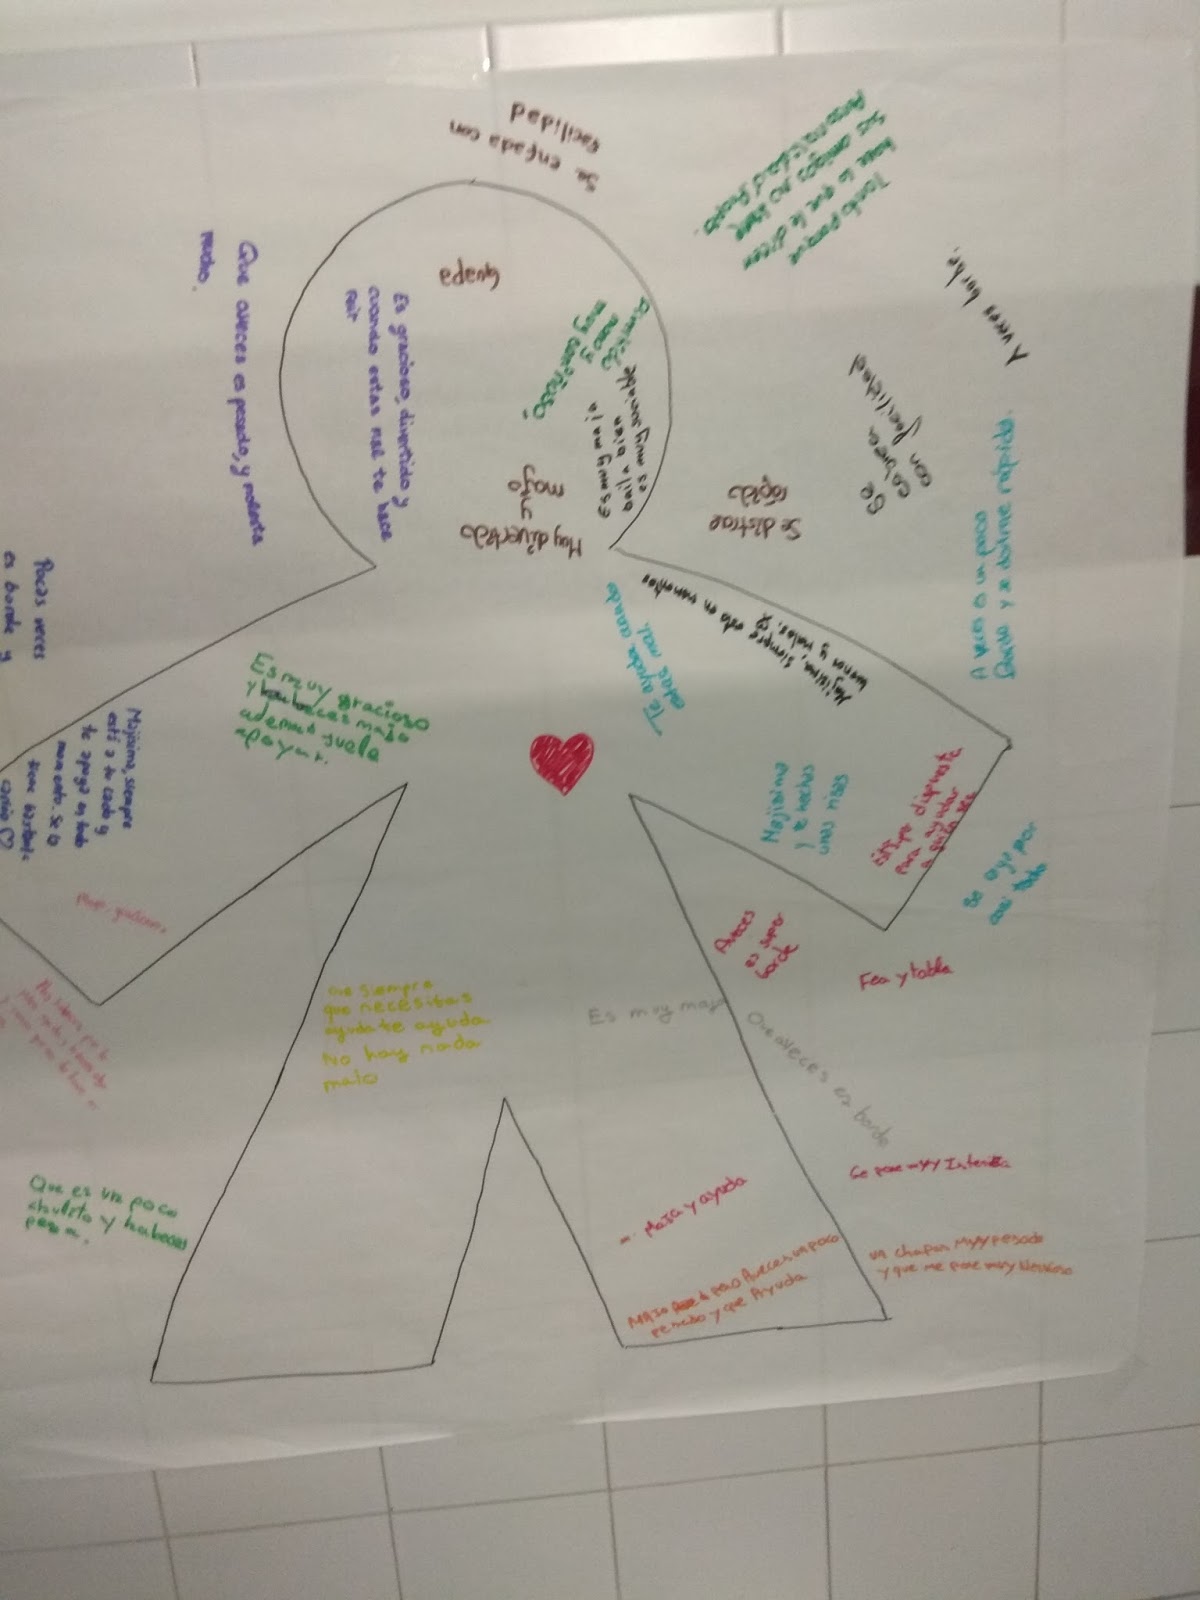 Se enfada con
facilidad
Tonto porque
hace lo que le dicen
sus amigos no tiene
Personalidad Propia.
A veces borde.
Que aveces es pesado, y molesta
mucho.
Guapa
Es gracioso, divertido y
cuando estas mal te hace
reir
Divertido
mono y
muy cariñoso,
Es muy maja
baila bien
es muy sociable
Muy divertido
y
majo
Se distrae
rápido
Se
cabrea
con facilidad
A veces es un poco
y se duerme rápido.
Pocas veces
es borde y
Majisima, siempre esta en momentos
buenos y malos.
Te ayuda cuando
estas mal.
Es muy gracioso
y habeces majo
además suele
apoyar.
Majisima, siempre
está a tu lado y
te apoya en todo
momento. Se le
tiene bastante
cariño
Majisima
y te hechas
unas risas
está super dispuesta
para ayudar
a quien sea
Se ralla por
casi todo
Aveces
es super
borde
Fea y tabla
que siempre
que necesitas
ayuda te ayuda
No hay nada
malo
Es muy maja
Que aveces es borde
Se pone muy Intensa
Que es un poco
chulito y habeces
pega.
Maja y ayuda
MAJO pero Aveces un poco
pesado y que Ayuda
un chapas Muy pesado
y que me pone muy Nervioso